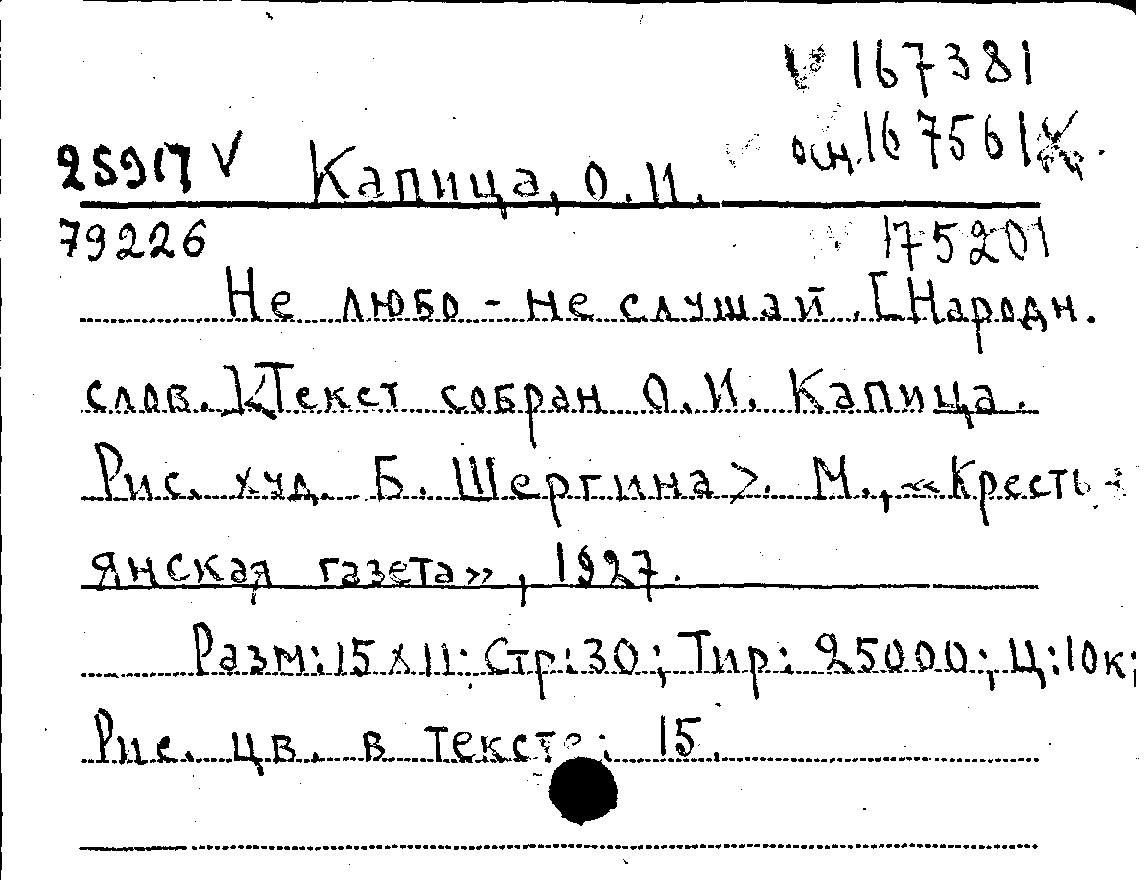 V 167381
осн. 167561
25917 V Капица, О. И.
79226 175201
Не любо - не слушай. [Народн.
слов.] <Текст собран О. И. Капица.
Рис. худ. Б. Шергина>. М., «Кресть-
янская газета», 1927.
Разм: 15х11; Стр: 30; Тир: 25000; Ц: 10к;
Рис. цв. в тексте: 15.